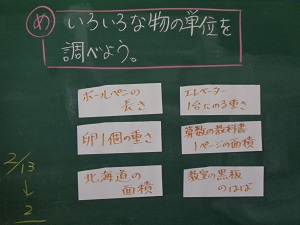 め いろいろな物の単位を
調べよう。
ボールペンの
長さ
エレベーター
1台にのる重さ
卵1個の重さ
算数の教科書
1ページの面積
北海道の
面積
教室の黒板
のはば
2/13
↓
2